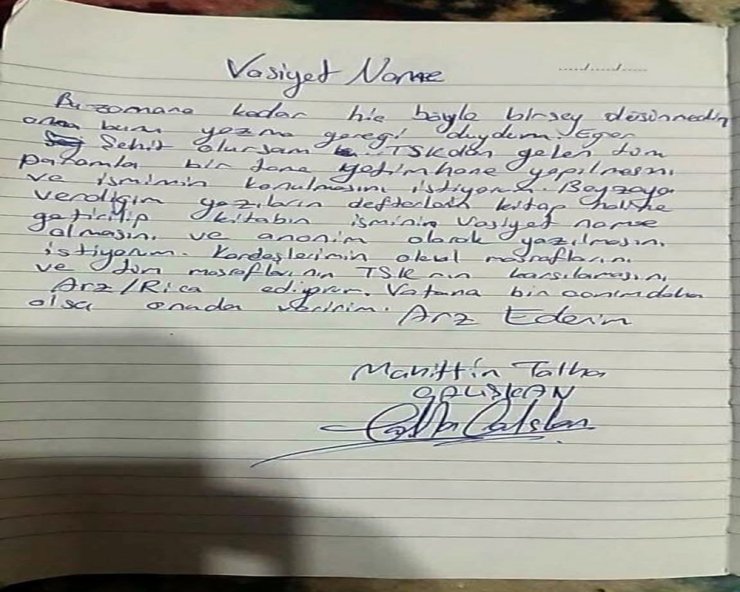 Vasiyet Name
..../..../....
Bu zamana kadar hic böyle birşey düsünmedim
ama bunu yazma gereği duydum. Eğer
Şehit olursam TSKdan gelen tüm
paramla bir tane yetimhane yapılmasını
ve ismimin konulmasını istiyorum. Beyzaya
verdiğim yazıların defterlerin kitap haline
getirilip kitabın isminin Vasiyet name
olmasını ve anonim olarak yazılmasını
istiyorum. Kardeşlerimin okul masraflarını
ve tüm masraflarının TSK nın karsılamasını
Arz/Rica ediyorum. Vatana bin canım daha
olsa onada veririm. Arz Ederim
Muhittin Talha
ÇALISKAN